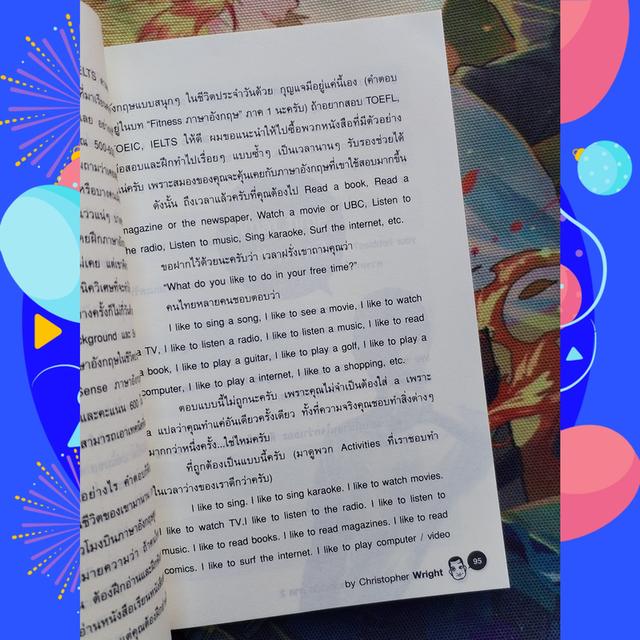 ังกฤษแบบสนุกๆ ในชีวิตประจำวันด้วย กุญแจมีอยู่แค่นี้เอง (คำตอบ
ยู่ในบท “Fitness ภาษาอังกฤษ” ภาค 1 นะครับ) ถ้าอยากสอบ TOEFL,
TOEIC, IELTS ให้ดี ผมขอแนะนำให้ไปซื้อพวกหนังสือที่มีตัวอย่าง
ข้อสอบและฝึกทำไปเรื่อยๆ แบบซ้ำๆ เป็นเวลานานๆ รับรองช่วยได้
แน่ครับ เพราะสมองของคุณจะคุ้นเคยกับภาษาอังกฤษที่เขาใช้สอบมากขึ้น
ดังนั้น ถึงเวลาแล้วครับที่คุณต้องไป Read a book, Read a
magazine or the newspaper, Watch a movie or UBC, Listen to
the radio, Listen to music, Sing karaoke, Surf the internet, etc.
ขอฝากไว้ด้วยนะครับว่า เวลาฝรั่งเขาถามคุณว่า
“What do you like to do in your free time?”
คนไทยหลายคนชอบตอบว่า
I like to sing a song, I like to see a movie, I like to watch
a TV, I like to listen a radio, I like to listen a music, I like to read
a book, I like to play a guitar, I like to play a golf, I like to play a
computer, I like to play a internet, I like to a shopping, etc.
ตอบแบบนี้ไม่ถูกนะครับ เพราะคุณไม่จำเป็นต้องใส่ a เพราะ
a แปลว่าคุณทำแค่อันเดียวครั้งเดียว ทั้งที่ความจริงคุณชอบทำสิ่งต่างๆ
มากกว่าหนึ่งครั้ง...ใช่ไหมครับ
ที่ถูกต้องเป็นแบบนี้ครับ (มาดูพวก Activities ที่เราชอบทำ
ในเวลาว่างของเราดีกว่าครับ)
I like to sing. I like to sing karaoke. I like to watch movies.
I like to watch TV.I like to listen to the radio. I like to listen to
music. I like to read books. I like to read magazines. I like to read
comics. I like to surf the internet. I like to play computer / video
by Christopher Wright
95